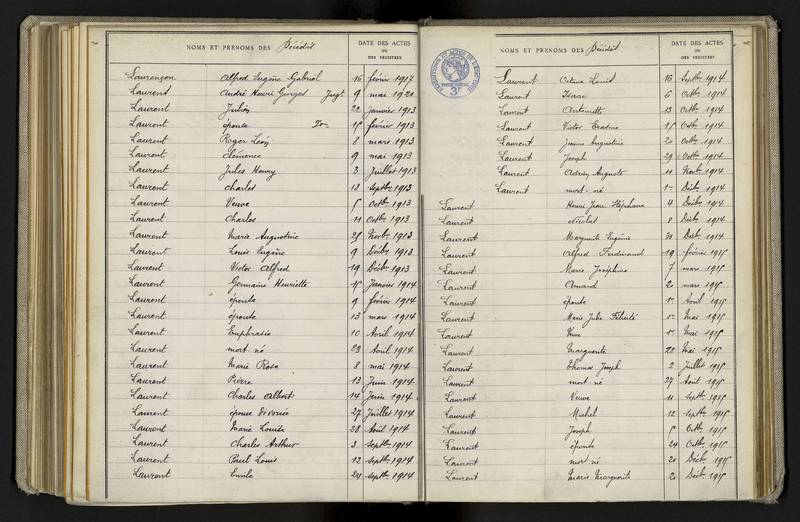 NOMS ET PRÉNOMS DES Décédés
DATE DES ACTES
OU
DES REGISTRES
Laurençon Alfred Eugène Gabriel 16 février 1917
Laurend André Henri Georges Jugt 9 mai 1921
Laurent Julien 22 janvier 1913
Laurent épouse 15 février 1913
Laurent Roger Léon 8 mars 1913
Laurent Clémence 9 mai 1913
Laurent Jules Henry 2 Juillet 1913
Laurent Charles 18 Septbre 1913
Laurent Veuve 5 Octbre 1913
Laurent Charles 11 Octbre 1913
Laurent Marie Augustine 25 Novbre 1913
Laurent Louis Eugène 9 Décbre 1913
Laurent Victor Alfred 19 Décbre 1913
Laurent Germaine Henriette 15 Janvier 1914
Laurent épouse 9 février 1914
Laurent épouse 13 mars 1914
Laurent Euphrasie 10 Avril 1914
Laurent mort né 23 Avril 1914
Laurent Marie Rose 8 mai 1914
Laurent Pierre 13 Juin 1914
Laurent Charles Albert 14 Juin 1914
Laurent épouse divorcée 27 Juillet 1914
Laurent Marie Louise 28 Août 1914
Laurent Charles Arthur 3 Septbre 1914
Laurent Paul Louis 12 Septbre 1914
Laurent Emile 24 Septbre 1914
NOMS ET PRÉNOMS DES Décédés
DATE DES ACTES
OU
DES REGISTRES
3F
Laurent 16 Septbre 1914
Laurent Isaac 6 Octbre 1914
Laurent Antoinette 13 Octbre 1914
Laurent Victor 15 Octbre 1914
Laurent Jeanne Augustine 20 Octbre 1914
Laurent Joseph 29 Octbre 1914
Laurent Adrien Auguste 11 Novbre 1914
Laurent mort-né 1er Décbre 1914
Laurent Henri Jean Stéphane 4 Décbre 1914
Laurent Nicolas 8 Décbre 1914
Laurent Marguerite Eugénie 30 Décbre 1914
Laurent Alfred Ferdinand 19 février 1915
Laurent Marie Joséphine 7 mars 1915
Laurent Armand 20 mars 1915
Laurent épouse 1er Avril 1915
Laurent Marie Julie Félicité 1er Mai 1915
Laurent Veuve 1er Mai 1915
Laurent Marguerite 22 Mai 1915
Laurent Thomas Joseph 2 Juillet 1915
Laurent mort né 27 Août 1915
Laurent Veuve 11 Septbre 1915
Laurent Michel 12 Septbre 1915
Laurent Joseph 5 Octbre 1915
Laurent épouse 24 Octbre 1915
Laurent mort né 20 Décbre 1915
Laurent Marie Marguerite 20 Décbre 1915